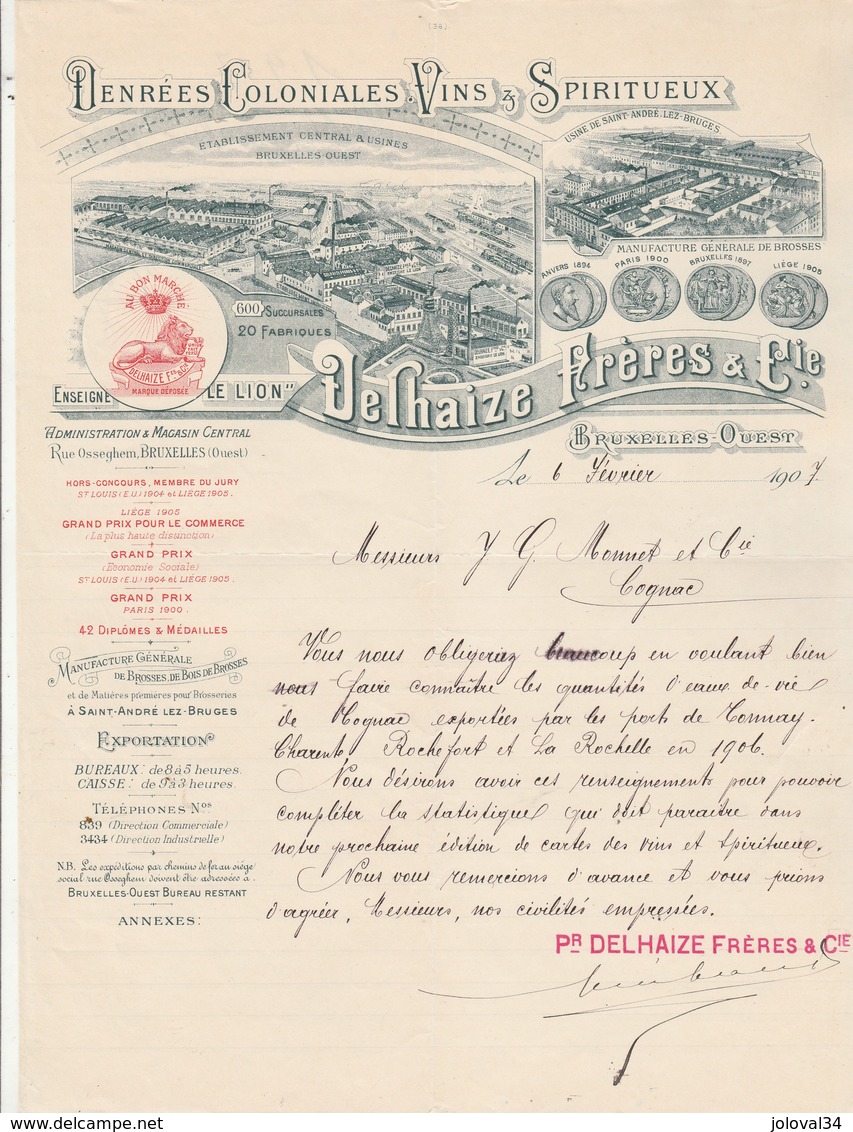 (38)
DENRÉES COLONIALES. VINS & SPIRITUEUX
ETABLISSEMENT CENTRAL & USINES
BRUXELLES-OUEST
USINE DE SAINT-ANDRÉ-LEZ-BRUGES
MANUFACTURE GÉNÉRALE DE BROSSES
ANVERS 1894
PARIS 1900
BRUXELLES 1897
LIÉGE 1905
AU BON MARCHÉ
DELHAIZE Fres & Cie
MARQUE DÉPOSÉE
600 SUCCURSALES
20 FABRIQUES
ENSEIGNE LE LION"
Delhaize Frères & Cie.
BRUXELLES-OUEST
ADMINISTRATION & MAGASIN CENTRAL
Rue Osseghem, BRUXELLES (Ouest)
HORS-CONCOURS, MEMBRE DU JURY
ST LOUIS (E.U.) 1904 et LIÉGE 1905.
LIÉGE 1905
GRAND PRIX POUR LE COMMERCE
(La plus haute distinction)
GRAND PRIX
(Economie Sociale)
ST LOUIS (E.U.) 1904 et LIÉGE 1905.
GRAND PRIX
PARIS 1900.
42 DIPLÔMES & MÉDAILLES
MANUFACTURE GÉNÉRALE
DE BROSSES, DE BOIS DE BROSSES
et de Matières premières pour Brosseries
À SAINT-ANDRÉ LEZ-BRUGES
EXPORTATION
BUREAUX: de 8 à 5 heures.
CAISSE: de 9 à 3 heures.
TÉLÉPHONES Nos
839 (Direction Commerciale)
3434 (Direction Industrielle)
N.B. Les expéditions par chemins de fer au siège
social rue Osseghem doivent être adressées à.
BRUXELLES-OUEST BUREAU RESTANT
ANNEXES:
Le 6 Février 1907.
Messieurs J G. Monnet et Cie
Cognac
Vous nous obligeriez beaucoup en voulant bien
nous faire connaître les quantités d'eaux-de-vie
de Cognac exportées par les ports de Tonnay-
Charente, Rochefort et La Rochelle en 1906.
Nous désirons avoir ces renseignements pour pouvoir
compléter la statistique qui doit paraître dans
notre prochaine édition de cartes des vins et spiritueux.
Nous vous remercions d'avance et vous prions
d'agréer, Messieurs, nos civilités empressées.
PR DELHAIZE FRÈRES & CIE
delcampe.net
joloval34